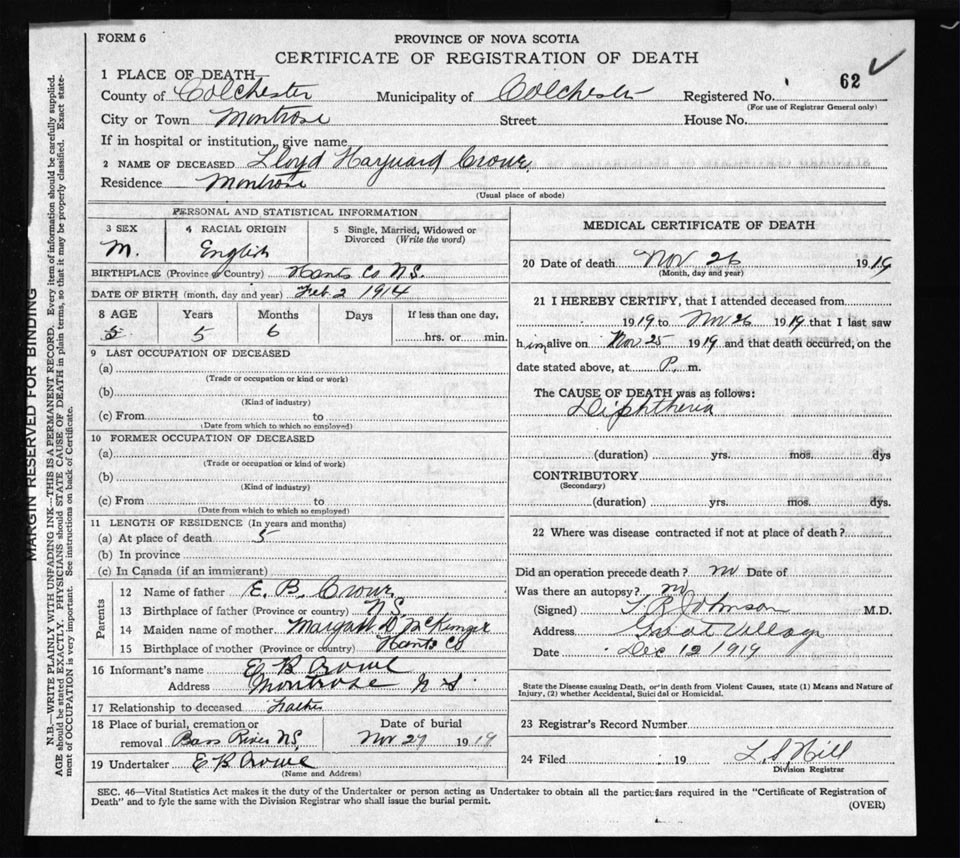 FORM 6
PROVINCE OF NOVA SCOTIA
CERTIFICATE OF REGISTRATION OF DEATH
62
1 PLACE OF DEATH
County of Colchester Municipality of Colchester Registered No.
(For use of Registrar General only)
City or Town Montrose Street House No.
If in hospital or institution, give name
2 NAME OF DECEASED Lloyd Crowe
Residence Montrose
(Usual place of abode)
PERSONAL AND STATISTICAL INFORMATION
3 SEX 4 RACIAL ORIGIN 5 Single, Married, Widowed or Divorced (Write the word)
M. English
BIRTHPLACE (Province or Country) Hants Co N.S.
DATE OF BIRTH (month, day and year) Feb. 2 1914
8 AGE Years Months Days If less than one day,
5 5 6 hrs. or min.
9 LAST OCCUPATION OF DECEASED
(a)
(Trade or occupation or kind or work)
(b)
(Kind of industry)
(c) From to
(Date from which to which so employed)
10 FORMER OCCUPATION OF DECEASED
(a)
(Trade or occupation or kind of work)
(b)
(Kind of industry)
(c) From to
(Date from which to which so employed)
11 LENGTH OF RESIDENCE (In years and months)
(a) At place of death 5
(b) In province
(c) In Canada (if an immigrant)
Parents
12 Name of father E. B. Crowe
13 Birthplace of father (Province or country) N.S.
14 Maiden name of mother Margaret
15 Birthplace of mother (Province or country) Hants Co
16 Informant's name E B Crowe
Address Montrose N S
17 Relationship to deceased Father
18 Place of burial, cremation or Date of burial
removal Bass River N.S. Nov 27 1919
19 Undertaker E B Crowe
(Name and Address)
MEDICAL CERTIFICATE OF DEATH
20 Date of death Nov 26 1919
(Month, day and year)
21 I HEREBY CERTIFY, that I attended deceased from
1919 to Nov 26 1919 that I last saw
him alive on Nov 25 1919 and that death occurred, on the
date stated above, at P. m.
The CAUSE OF DEATH was as follows:
Diphtheria
(duration) yrs. mos. dys
CONTRIBUTORY
(Secondary)
(duration) yrs. mos. dys.
22 Where was disease contracted if not at place of death?
Did an operation precede death? no Date of
Was there an autopsy? no
(Signed) T R Johnson M.D.
Address Great Village
Date Dec 12 1919
State the Disease causing Death, or in death from Violent Causes, state (1) Means and Nature of
Injury, (2) whether Accidental, Suicidal or Homicidal.
23 Registrar's Record Number
24 Filed 19 L. S. Hill
Division Registrar
SEC. 46—Vital Statistics Act makes it the duty of the Undertaker or person acting as Undertaker to obtain all the particulars required in the "Certificate of Registration of
Death" and to fyle the same with the Division Registrar who shall issue the burial permit.
(OVER)
MARGIN RESERVED FOR BINDING
N.B.—WRITE PLAINLY WITH UNFADING INK—THIS IS A PERMANENT RECORD. Every item of information should be carefully supplied.
AGE should be stated EXACTLY. PHYSICIANS should STATE CAUSE OF DEATH in plain terms, so that it may be properly classified. Exact state-
ment of OCCUPATION is very important. See instructions on back of Certificate.